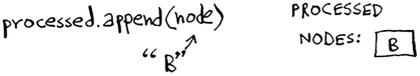 processed.append(node)
"B"
PROCESSED
NODES: B